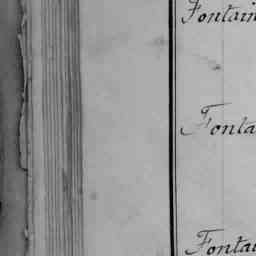 Fontain
Fonta
Fontai